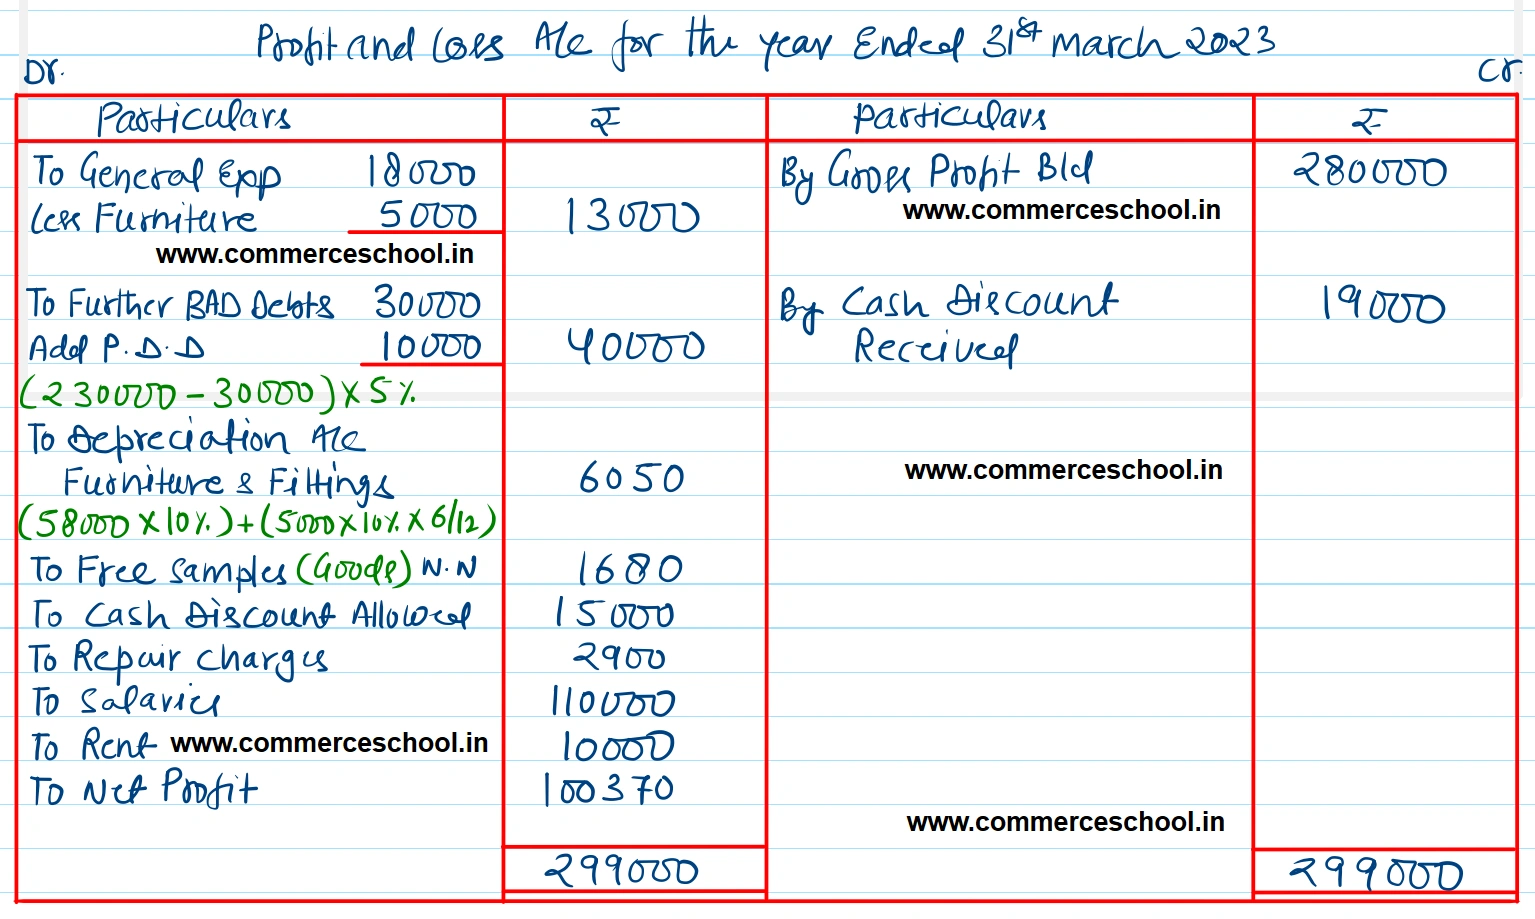 Profit and Loss A/c for the year Ended 31st March 2023
Dr. Cr.
Particulars ₹ Particulars ₹
To General Exp 18000 By Gross Profit B/d 280000
Less Furniture 5000 13000 www.commerceschool.in
www.commerceschool.in
To Further BAD Debts 30000 By Cash Discount 19000
Add P.D.D 10000 40000 Received
(230000 - 30000) × 5%
To Depreciation A/c
Furniture & Fittings 6050 www.commerceschool.in
(58000 × 10%) + (5000 × 10% × 6/12)
To Free Samples (Goods) N.N 1680
To Cash Discount Allowed 15000
To Repair Charges 2900
To Salaries 110000
To Rent www.commerceschool.in 10000
To Net Profit 100370
www.commerceschool.in
299000 299000